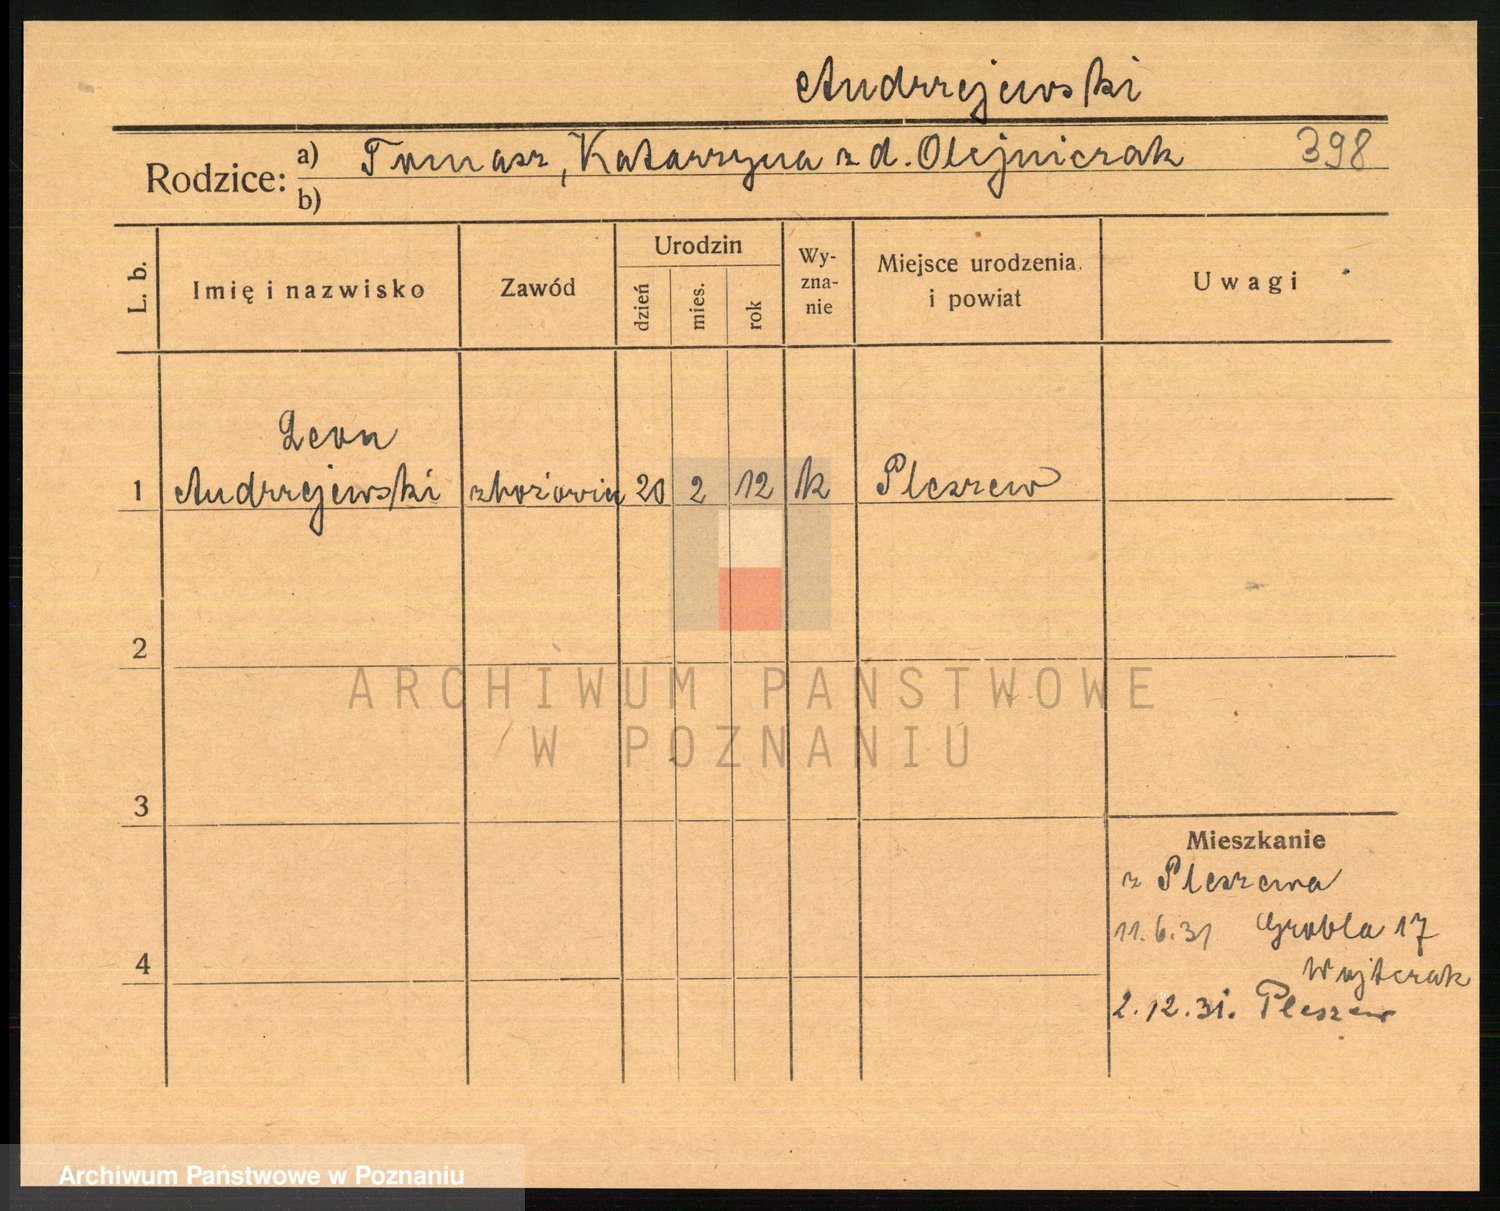 Andrzejewski
Rodzice: a) Tomasz, Katarzyna z d. Olejniczak 398
b)
L. b. Imię i nazwisko Zawód Urodzin dzień mies. rok Wy-zna-nie Miejsce urodzenia i powiat Uwagi
Leon
1 Andrzejewski 20 2 12 k Pleszew
2
ARCHIWUM PAŃSTWOWE
W POZNANIU
3
Mieszkanie
z Pleszewa
11.6.31 Grobla 17
4
Wojtczak
2.12.31. Pleszew
Archiwum Państwowe w Poznaniu